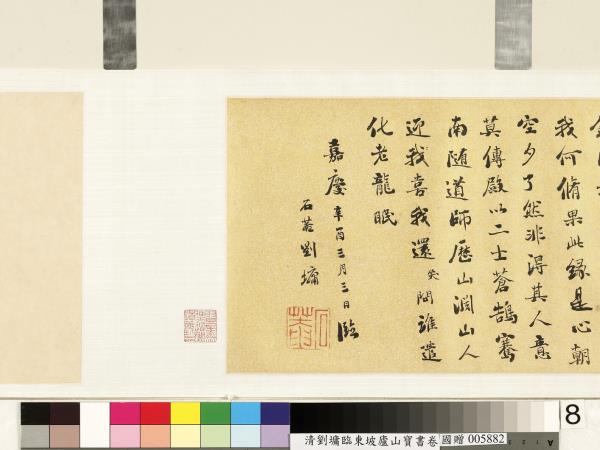 我何脩果此緣是心朝
空夕了然非得其人意
莫傳殿以二士蒼鵠騫
南隨道師歷山淵山人
迎我喜我還笑問誰遣
化老龍眠
嘉慶辛酉三月三日臨
石菴劉墉
清劉墉臨東坡廬山寶書卷
國贈 005882
8